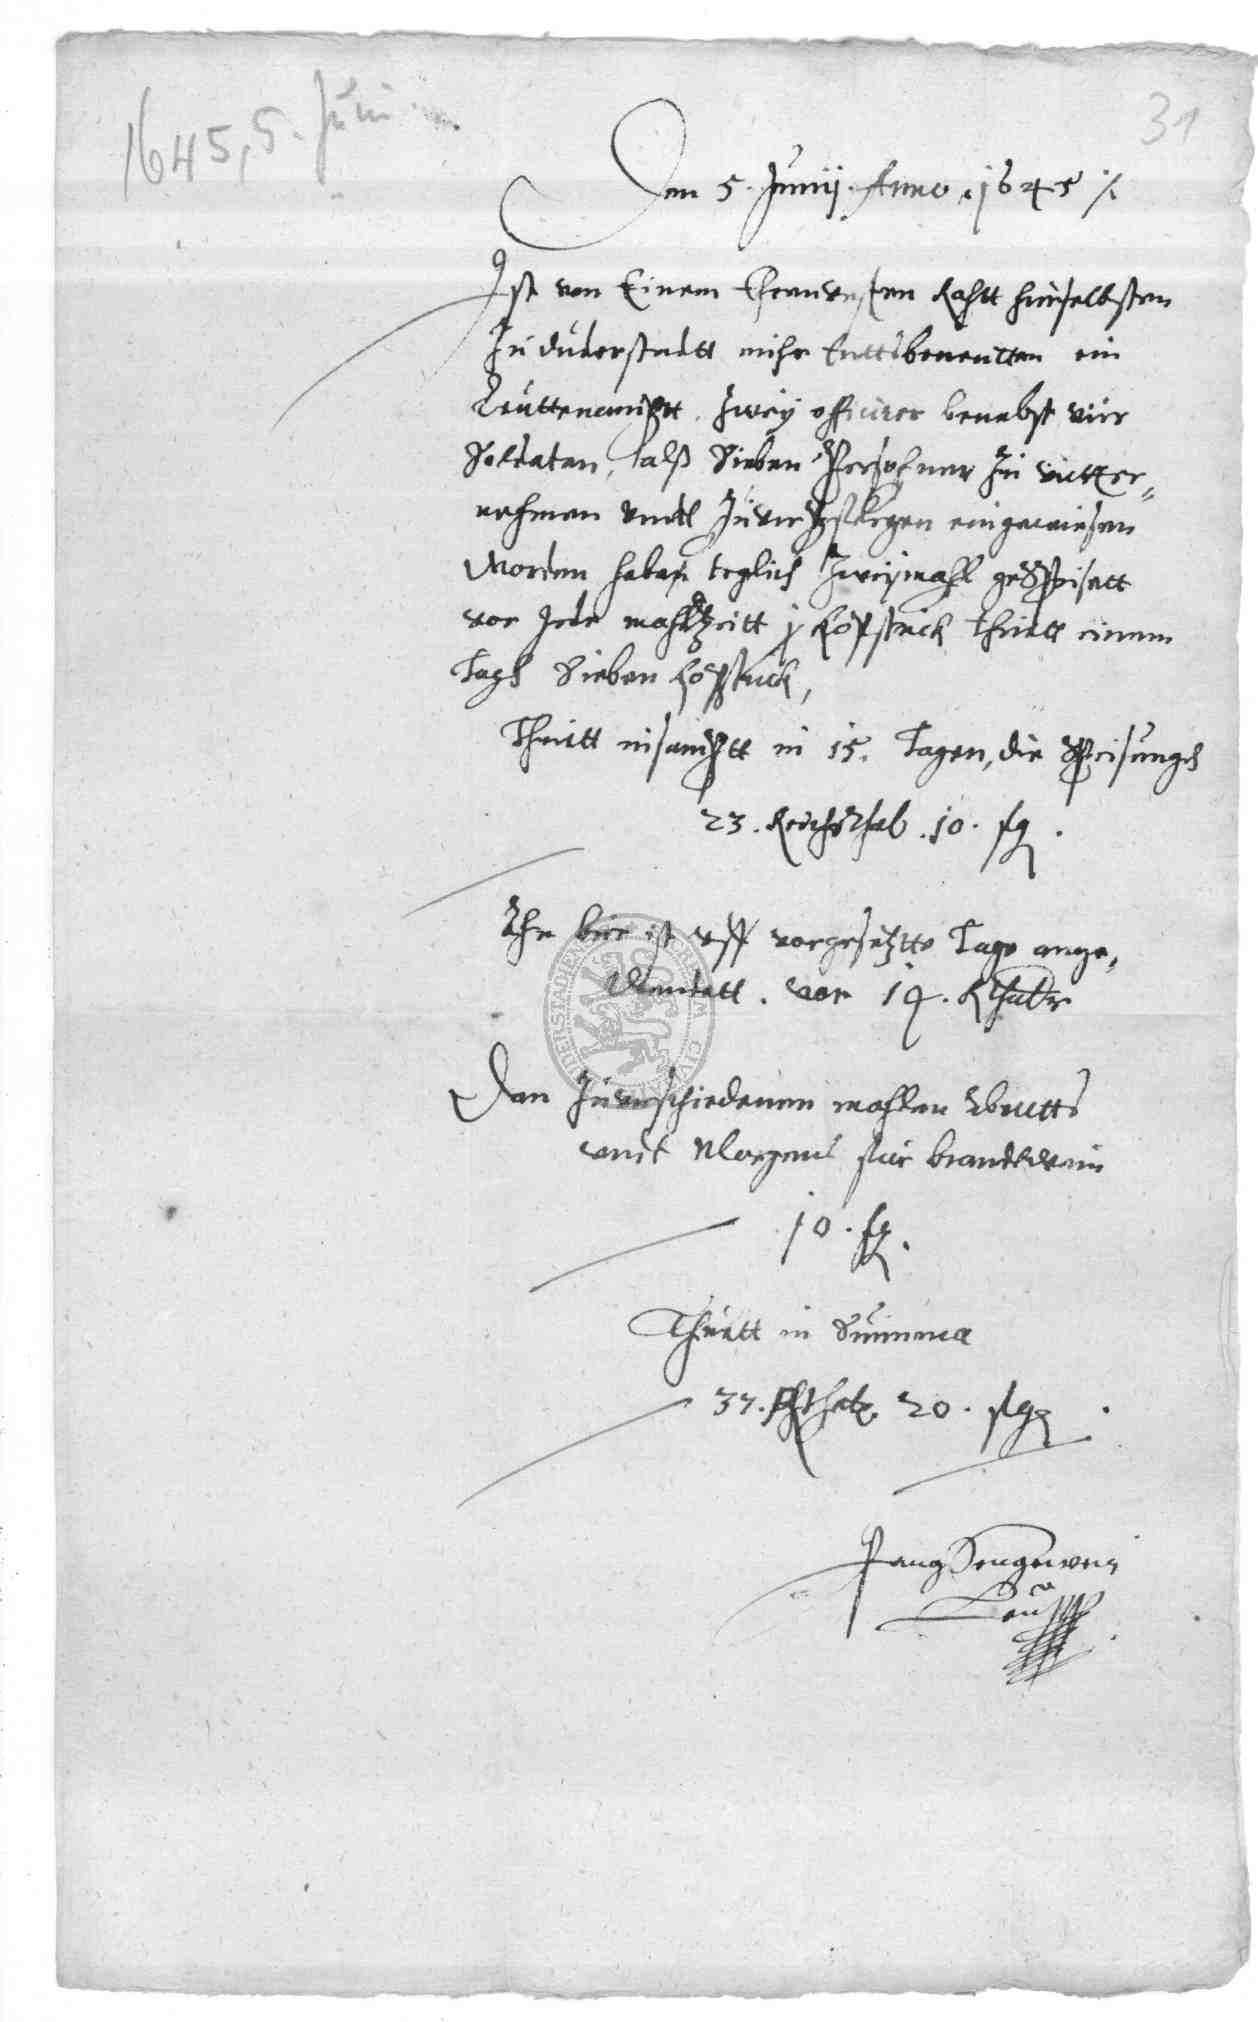 1645, 5. Juni
31
Den 5. Junij. Anno 1645 /.
Ist von Einem Ehrenvesten Rahtt hierselbsten
In duderstadtt mihr Endtsbenentten ein
Leuttenamptt. Zwey officirer benebst vier
Soldaten, alß Sieben Persohnen Zu unter-
nehmen undt Zu verpflegen eingewiesen
Worden haben teglich Zweymahl geSpeisett
vor Jede mahlzeitt j Kopstück thuett einen
Tagh Sieben Kopstuck,
Thuett insamptt in 15. Tagen, die Speisungh
23. Reichsthal. 10. sg.
Ihr bier ist uff vorgesetztte Tage ange-
Wendett. vor 14. Rthaler
Den Zu verschiedenen mahlen Abentts
undt Morgens für brandtwein
10. sg.
Thuett in Summa
37. Rthal. 20. sg.